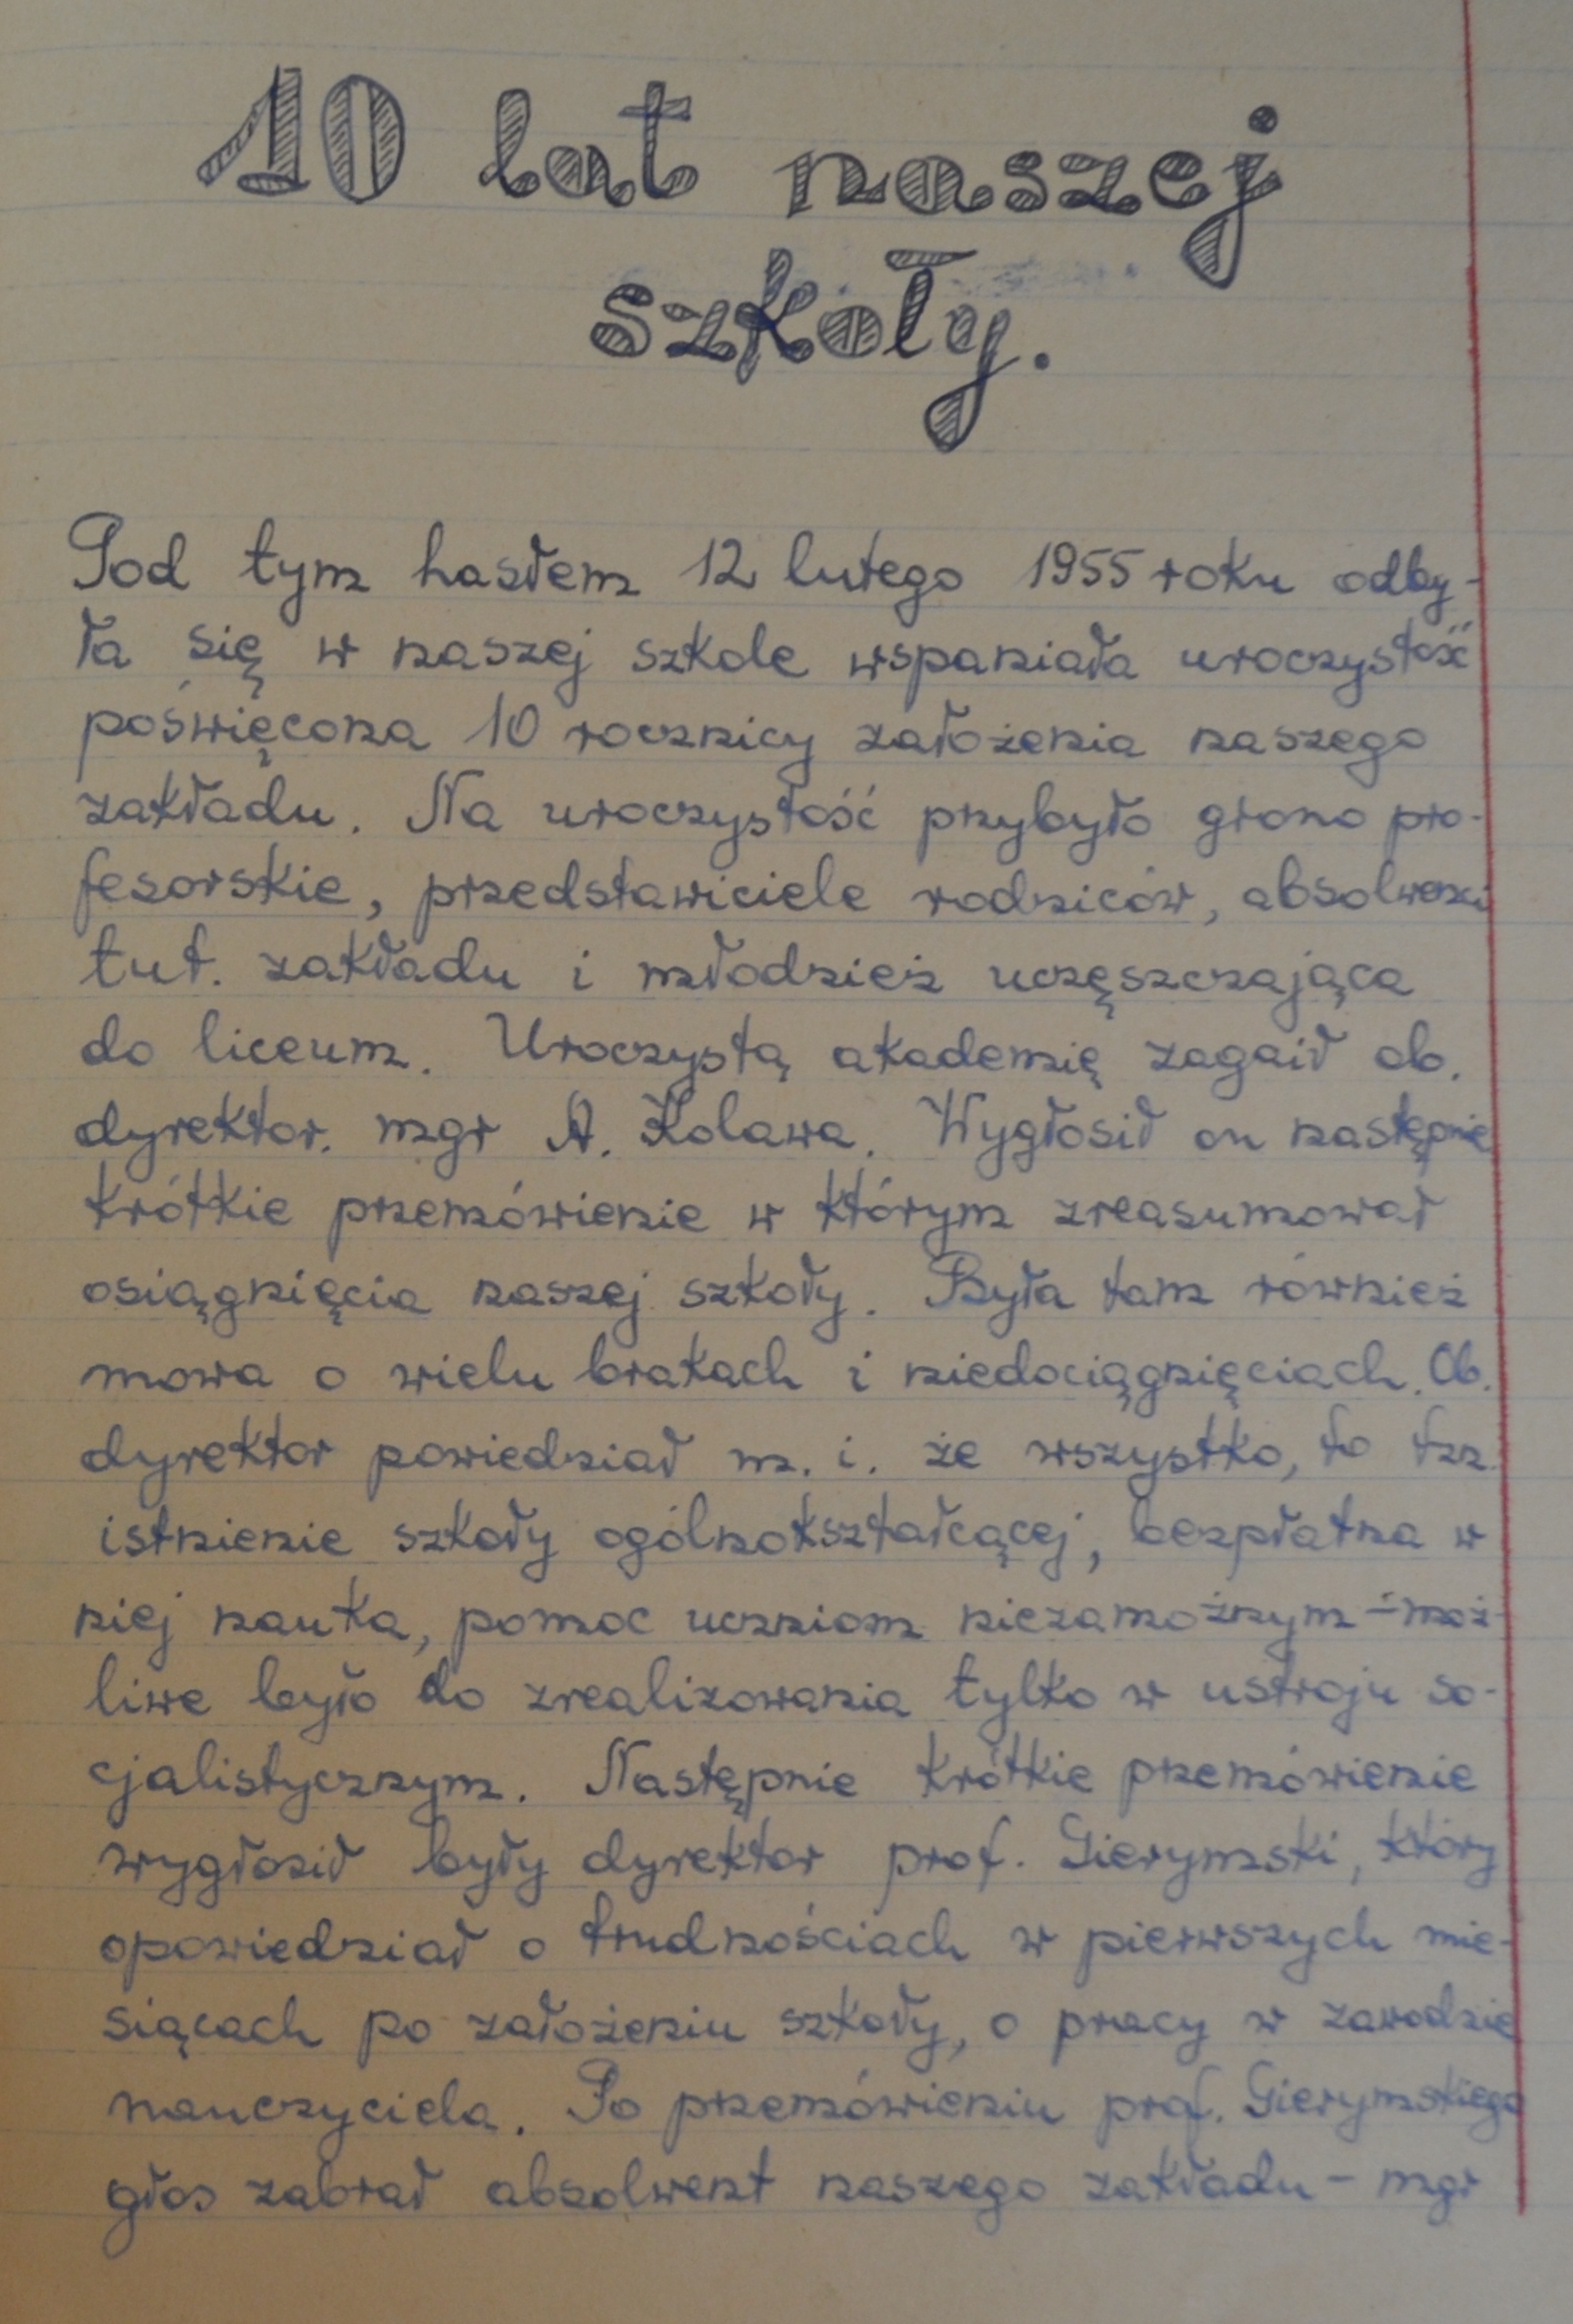 10 lat naszej
szkoły.
Pod tym hasłem 12 lutego 1955 roku odby-
ła się w naszej szkole wspaniała uroczystość
poświęcona 10 rocznicy założenia naszego
zakładu. Na uroczystość przybyło grono pro-
fesorskie, przedstawiciele rodziców, absolwenci
tut. zakładu i młodzież uczęszczająca
do liceum. Uroczystą akademię zagaił ob.
dyrektor. mgr A. Kolawa. Wygłosił on następnie
krótkie przemówienie w którym zreasumował
osiągnięcia naszej szkoły. Była tam również
mowa o wielu brakach i niedociągnięciach. Ob.
dyrektor powiedział m. i. że wszystko, to tzn.
istnienie szkoły ogólnokształcącej, bezpłatna w
niej nauka, pomoc uczniom niezamożnym - moż-
liwe było do zrealizowania tylko w ustroju so-
cjalistycznym. Następnie krótkie przemówienie
wygłosił były dyrektor prof. Gierymski, który
opowiedział o trudnościach w pierwszych mie-
siącach po założeniu szkoły, o pracy w zawodzie
nauczyciela. Po przemówieniu prof. Gierymskiego
głos zabrał absolwent naszego zakładu - mgr